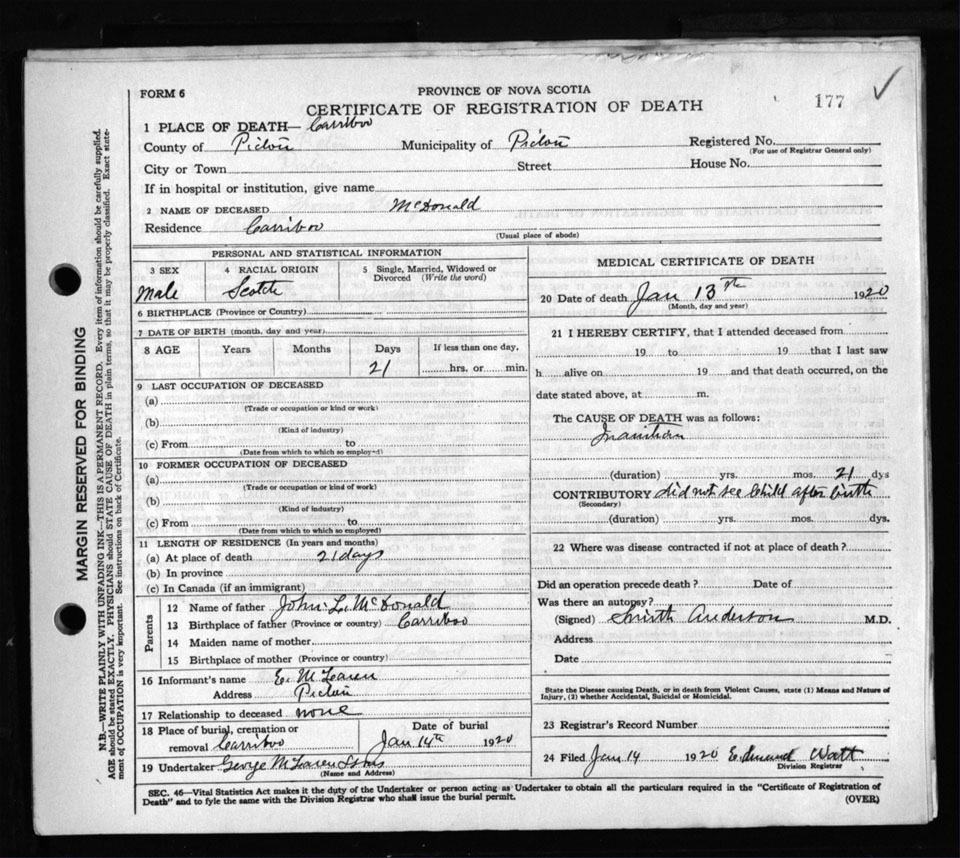 FORM 6
PROVINCE OF NOVA SCOTIA
CERTIFICATE OF REGISTRATION OF DEATH
177
1 PLACE OF DEATH— Carriboo
County of Pictou Municipality of Pictou Registered No.
(For use of Registrar General only)
City or Town Street House No.
If in hospital or institution, give name
2 NAME OF DECEASED McDonald
Residence Carriboo
(Usual place of abode)
PERSONAL AND STATISTICAL INFORMATION
3 SEX 4 RACIAL ORIGIN 5 Single, Married, Widowed or
Divorced (Write the word)
Male Scotch
6 BIRTHPLACE (Province or Country)
7 DATE OF BIRTH (month, day and year)
8 AGE Years Months Days If less than one day,
21 hrs. or min.
9 LAST OCCUPATION OF DECEASED
(a)
(Trade or occupation or kind or work)
(b)
(Kind of industry)
(c) From to
(Date from which to which so employed)
10 FORMER OCCUPATION OF DECEASED
(a)
(Trade or occupation or kind of work)
(b)
(Kind of industry)
(c) From to
(Date from which to which so employed)
11 LENGTH OF RESIDENCE (In years and months)
(a) At place of death 21 days
(b) In province
(c) In Canada (if an immigrant)
Parents
12 Name of father John L. McDonald
13 Birthplace of father (Province or country) Carriboo
14 Maiden name of mother
15 Birthplace of mother (Province or country)
16 Informant's name E. McLaren
Address Pictou
17 Relationship to deceased none
18 Place of burial, cremation or Date of burial
removal Carriboo Jan 14th 1920
19 Undertaker George McLaren & Sons
(Name and Address)
MEDICAL CERTIFICATE OF DEATH
20 Date of death Jan 13th 1920
(Month, day and year)
21 I HEREBY CERTIFY, that I attended deceased from
19 to 19 that I last saw
h alive on 19 and that death occurred, on the
date stated above, at m.
The CAUSE OF DEATH was as follows:
Inanition
(duration) yrs. mos. 21 dys
CONTRIBUTORY did not see child after birth
(Secondary)
(duration) yrs. mos. dys.
22 Where was disease contracted if not at place of death?
Did an operation precede death? Date of
Was there an autopsy?
(Signed) Smith Anderson M.D.
Address
Date
State the Disease causing Death, or in death from Violent Causes, state (1) Means and Nature of
Injury, (2) whether Accidental, Suicidal or Homicidal.
23 Registrar's Record Number
24 Filed Jan 14 1920 Edmund Watt
Division Registrar
SEC. 46—Vital Statistics Act makes it the duty of the Undertaker or person acting as Undertaker to obtain all the particulars required in the "Certificate of Registration of
Death" and to fyle the same with the Division Registrar who shall issue the burial permit.
(OVER)
MARGIN RESERVED FOR BINDING
N.B.—WRITE PLAINLY WITH UNFADING INK—THIS IS A PERMANENT RECORD. Every item of information should be carefully supplied.
AGE should be stated EXACTLY. PHYSICIANS should STATE CAUSE OF DEATH in plain terms, so that it may be properly classified. Exact state-
ment of OCCUPATION is very important. See instructions on back of Certificate.